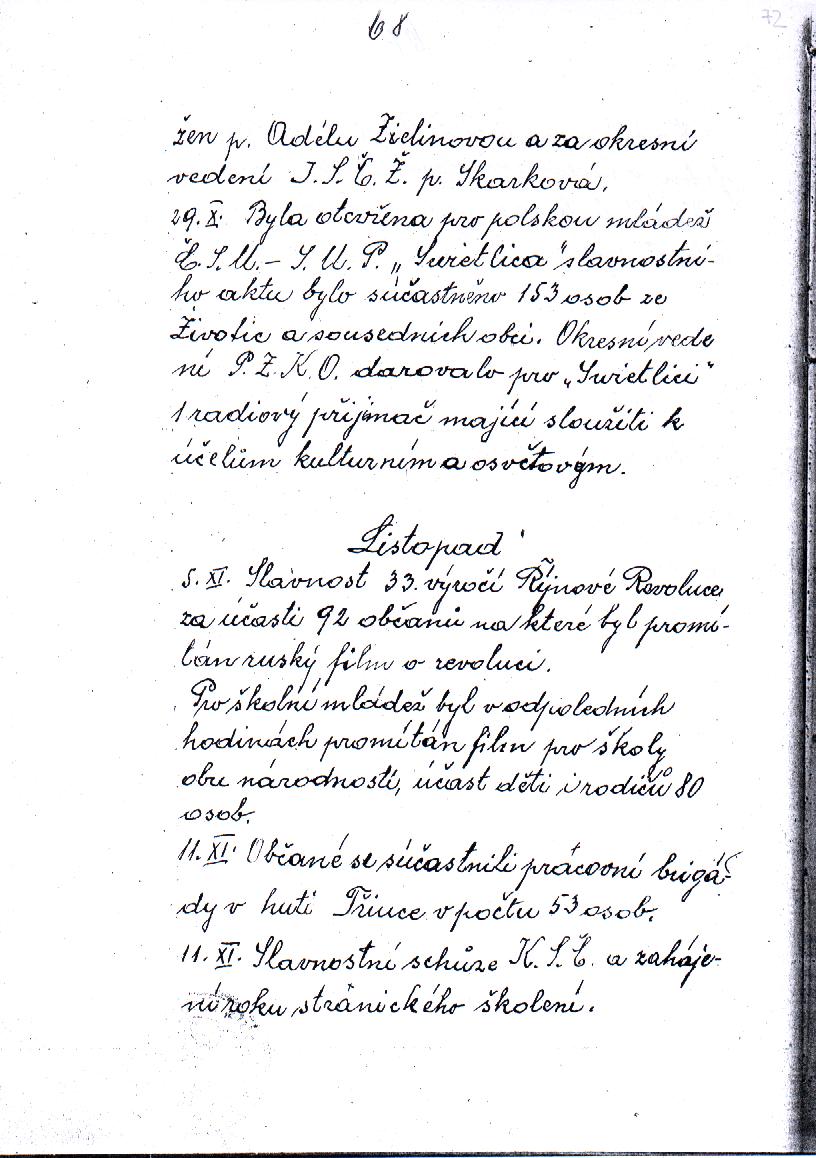 68
72
žen p. Adélu Zielinovou a za okresní
vedení J. S. Č. Ž. p. Skarková.
29. X. Byla otevřena pro polskou mládež
Č. S. M. – S. M. P. „Swietlica" slavnostní-
ho aktu bylo súčastněno 153 osob ze
Životic a sousedních obcí. Okresní vede
ní P. Z. K. O. darovalo pro „Swietlici"
1 radiový přijimač mající sloužiti k
účelům kulturním a osvětovým.
Listopad
5. XI. Slavnost 33. výročí Řijnové Revoluce
za účasti 92 občanů na které byl promí-
tán ruský film o revoluci.
Pro školní mládež byl v odpoledních
hodinách promítán film pro školy
obu národností, účast dětí i rodičů 80
osob.
11. XI. Občané se súčastnili prácovní brigá-
dy v huti Třince v počtu 53 osob.
11. XI. Slavnostní schůze K. S. Č. a zaháje-
ní roku stránického školení.